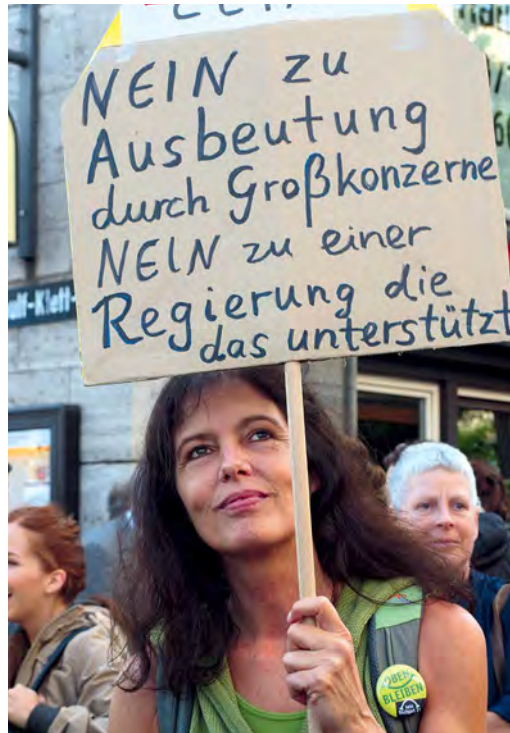 NEIN zu
Ausbeutung
durch Großkonzerne
NEIN zu einer
Regierung die
das unterstützt
ulf-Klett-
OBEN
BLEIBEN